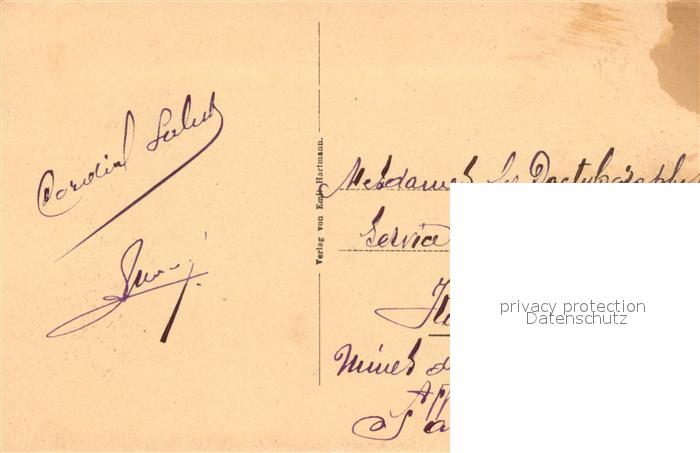 Cordial Salut
Verlag von Emil Hartmann.
Mesdames les Dactylographes
Service
Mines d
Aff
Sa
privacy protection
Datenschutz